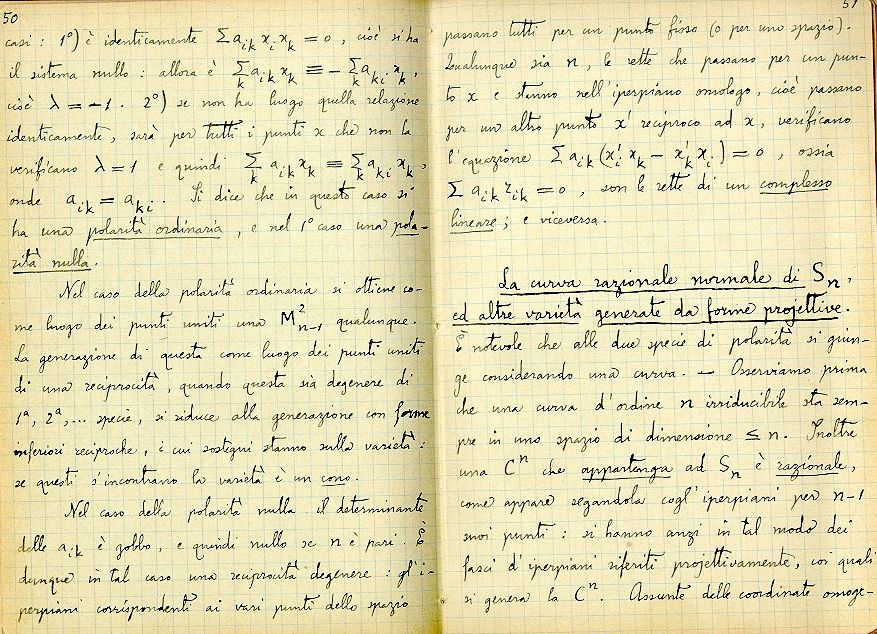 50
casi: 1°) è identicamente Σ a_{ik} x_i x_k = 0, cioè si ha
il sistema nullo: allora è Σ_k a_{ik} x_k ≡ − Σ_k a_{ki} x_k,
cioè λ = −1. 2°) se non ha luogo quella relazione
identicamente, sarà per tutti i punti x che non la
verificano λ = 1 e quindi Σ_k a_{ik} x_k ≡ Σ_k a_{ki} x_k,
onde a_{ik} = a_{ki}. Si dice che in questo caso si
ha una polarità ordinaria, e nel 1° caso una pola-
rità nulla.
Nel caso della polarità ordinaria si ottiene co-
me luogo dei punti uniti una M²_{n-1} qualunque.
La generazione di questa come luogo dei punti uniti
di una reciprocità, quando questa sia degenere di
1ª, 2ª,... specie, si riduce alla generazione con forme
inferiori reciproche, i cui sostegni stanno sulla varietà:
se questi s'incontrano la varietà è un cono.
Nel caso della polarità nulla il determinante
delle a_{ik} è gobbo, e quindi nullo se n è pari. È
dunque in tal caso una reciprocità degenere: gl'i-
perpiani corrispondenti ai vari punti dello spazio
51
passano tutti per un punto fisso (o per uno spazio).
Qualunque sia n, le rette che passano per un pun-
to x e stanno nell'iperpiano omologo, cioè passano
per un altro punto x' reciproco ad x, verificano
l'equazione Σ a_{ik} (x'_i x_k − x'_k x_i) = 0, ossia
Σ a_{ik} r_{ik} = 0, son le rette di un complesso
lineare; e viceversa.
La curva razionale normale di S_n,
ed altre varietà generate da forme projettive.
È notevole che alle due specie di polarità si giun-
ge considerando una curva. — Osserviamo prima
che una curva d'ordine n irriducibile sta sem-
pre in uno spazio di dimensione ≤ n. Inoltre
una Cⁿ che appartenga ad S_n è razionale,
come appare segandola cogl'iperpiani per n-1
suoi punti: si hanno anzi in tal modo dei
fasci d'iperpiani riferiti projettivamente, coi quali
si genera la Cⁿ. Assunte delle coordinate omoge-